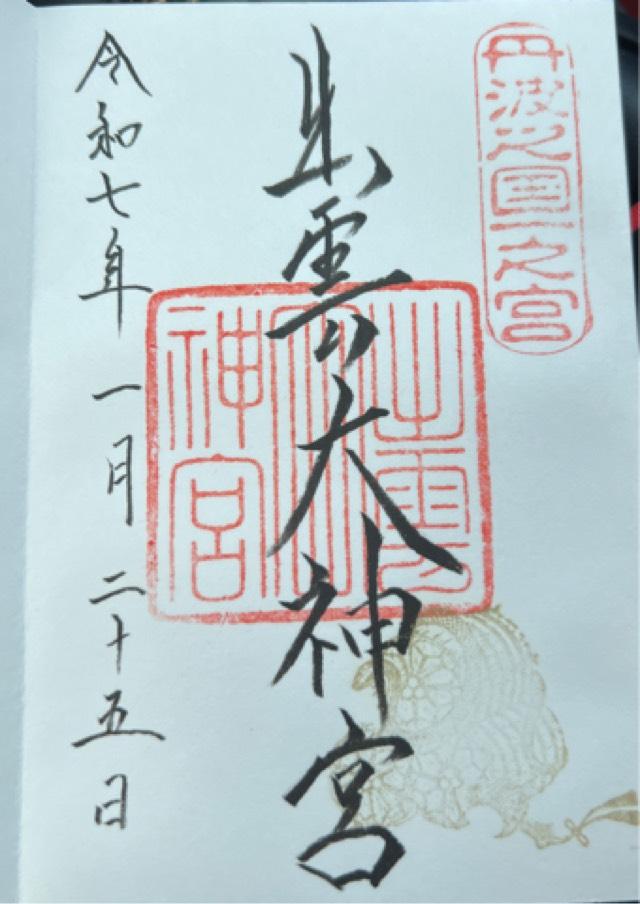 丹波之国一之宮
出雲大神宮
出雲大神宮
令和七年 一月 二十五日